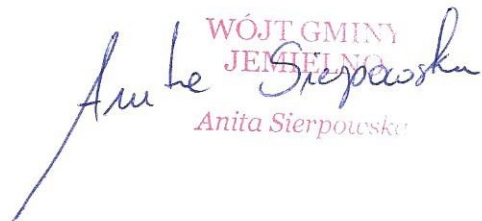 WÓJT GMINY
JEMIELNO
Anita Sierpowska
Anita Sierpowska